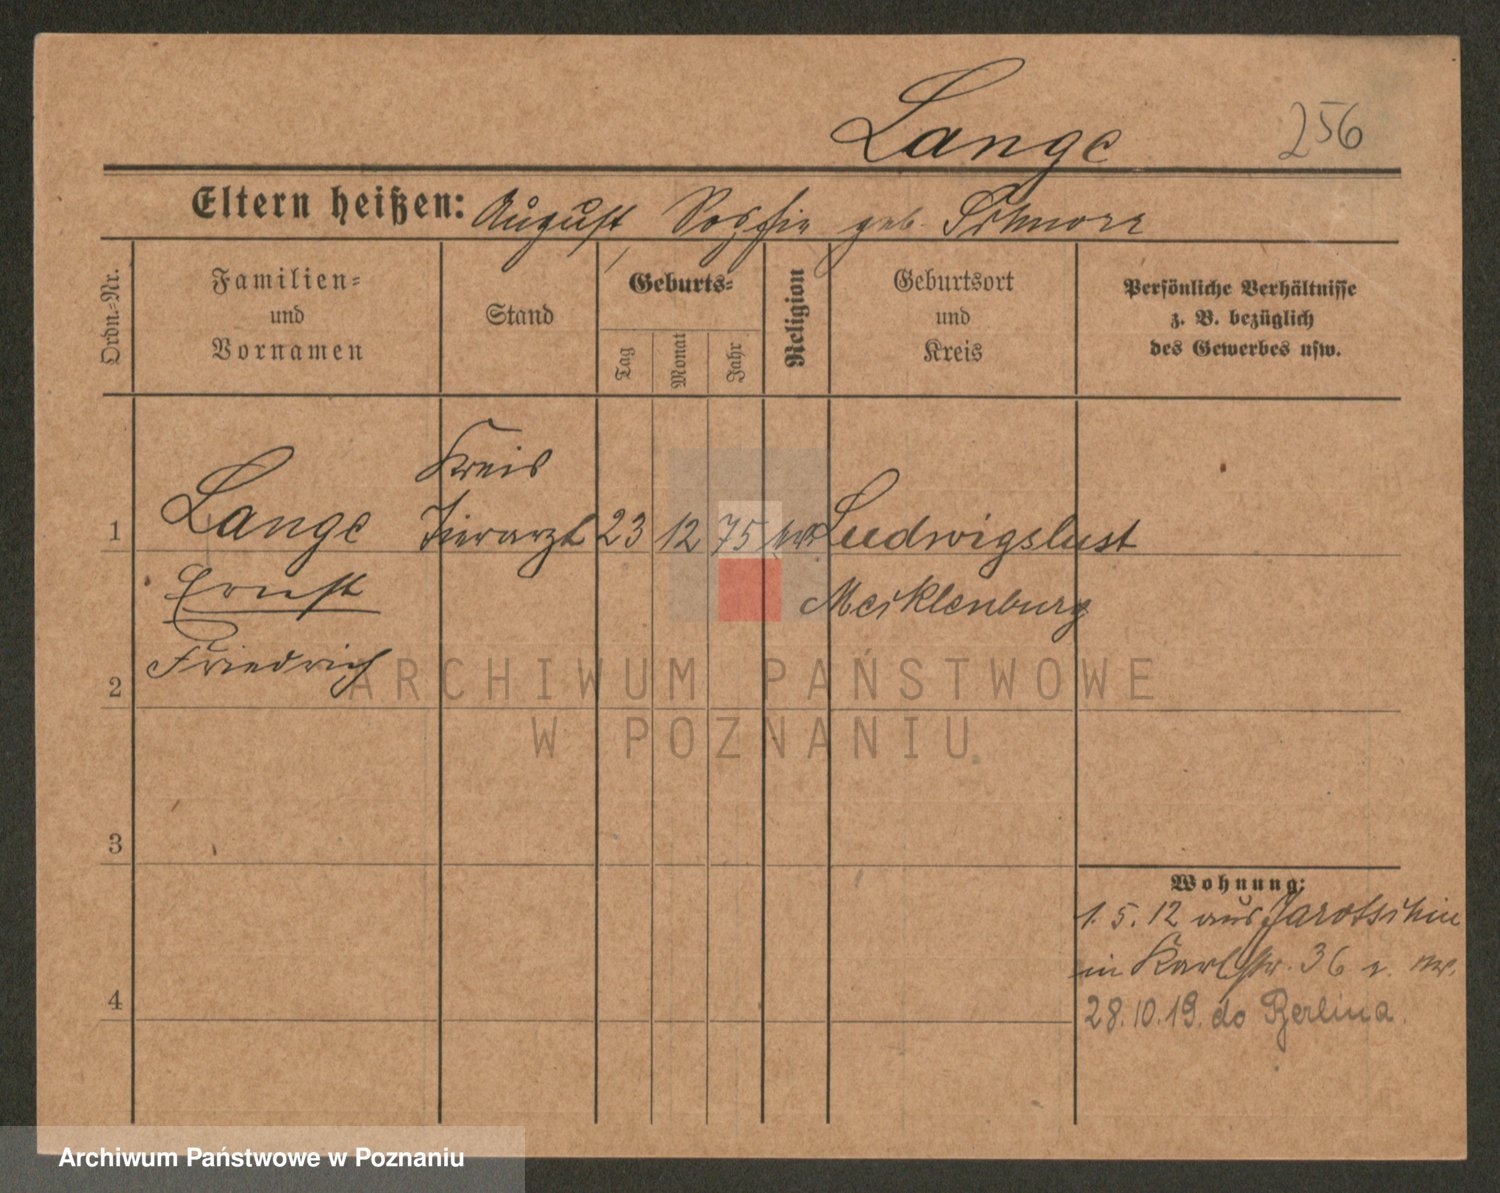 Lange
256
Eltern heißen: August, Sophie geb. Schnorr
Ordn.-Nr.
Familien=
und
Vornamen
Stand
Geburts=
Tag
Monat
Jahr
Religion
Geburtsort
und
Kreis
Persönliche Verhältnisse
z. B. bezüglich
des Gewerbes usw.
Kreis
1 Lange Tierarzt 23 12 75 Ludwigslust
Ernst Mecklenburg
Friedrich
2
3
4
Wohnung:
1.5.12 aus Jarotschin
in Karlstr. 36
28.10.19. do Berlina.
ARCHIWUM PAŃSTWOWE
W POZNANIU
Archiwum Państwowe w Poznaniu